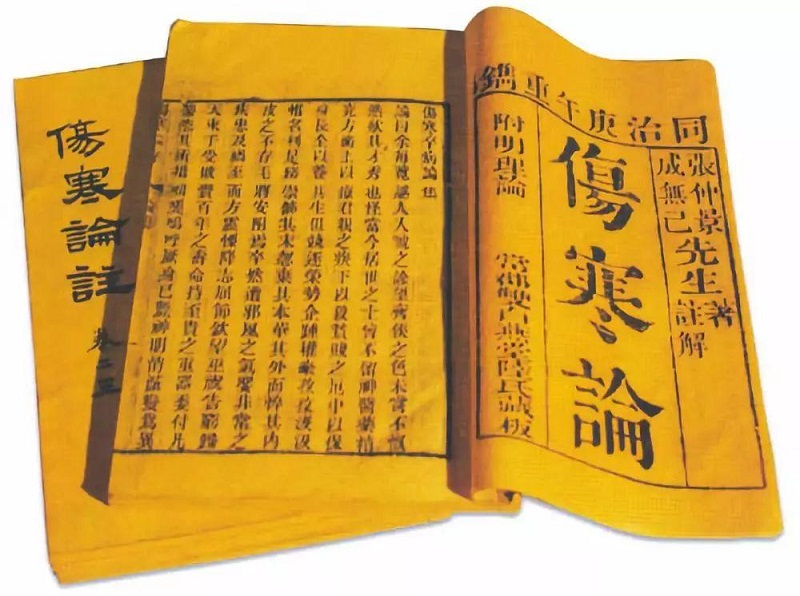 同治庚午重鐫
張仲景先生著
成無己先生註解
傷寒論
附明理論 常郡雙白燕堂陸氏藏板
傷寒卒病論集
論曰余每覽越人入虢之診望齊侯之色未嘗不慨
然歎其才秀也怪當今居世之士曾不留神醫藥精
究方術上以療君親之疾下以救貧賤之厄中以保
身長全以養其生但競逐榮勢企踵權豪孜孜汲汲
惟名利是務崇飾其末忽棄其本華其外而悴其內
皮之不存毛將安附焉卒然遭邪風之氣嬰非常之
疾患及禍至而方震慄降志屈節欽望巫祝告窮歸
天束手受敗賫百年之壽命持至貴之重器委付凡
醫恣其所措咄嗟嗚呼厥身已斃神明消滅變為異
傷寒論註 卷二